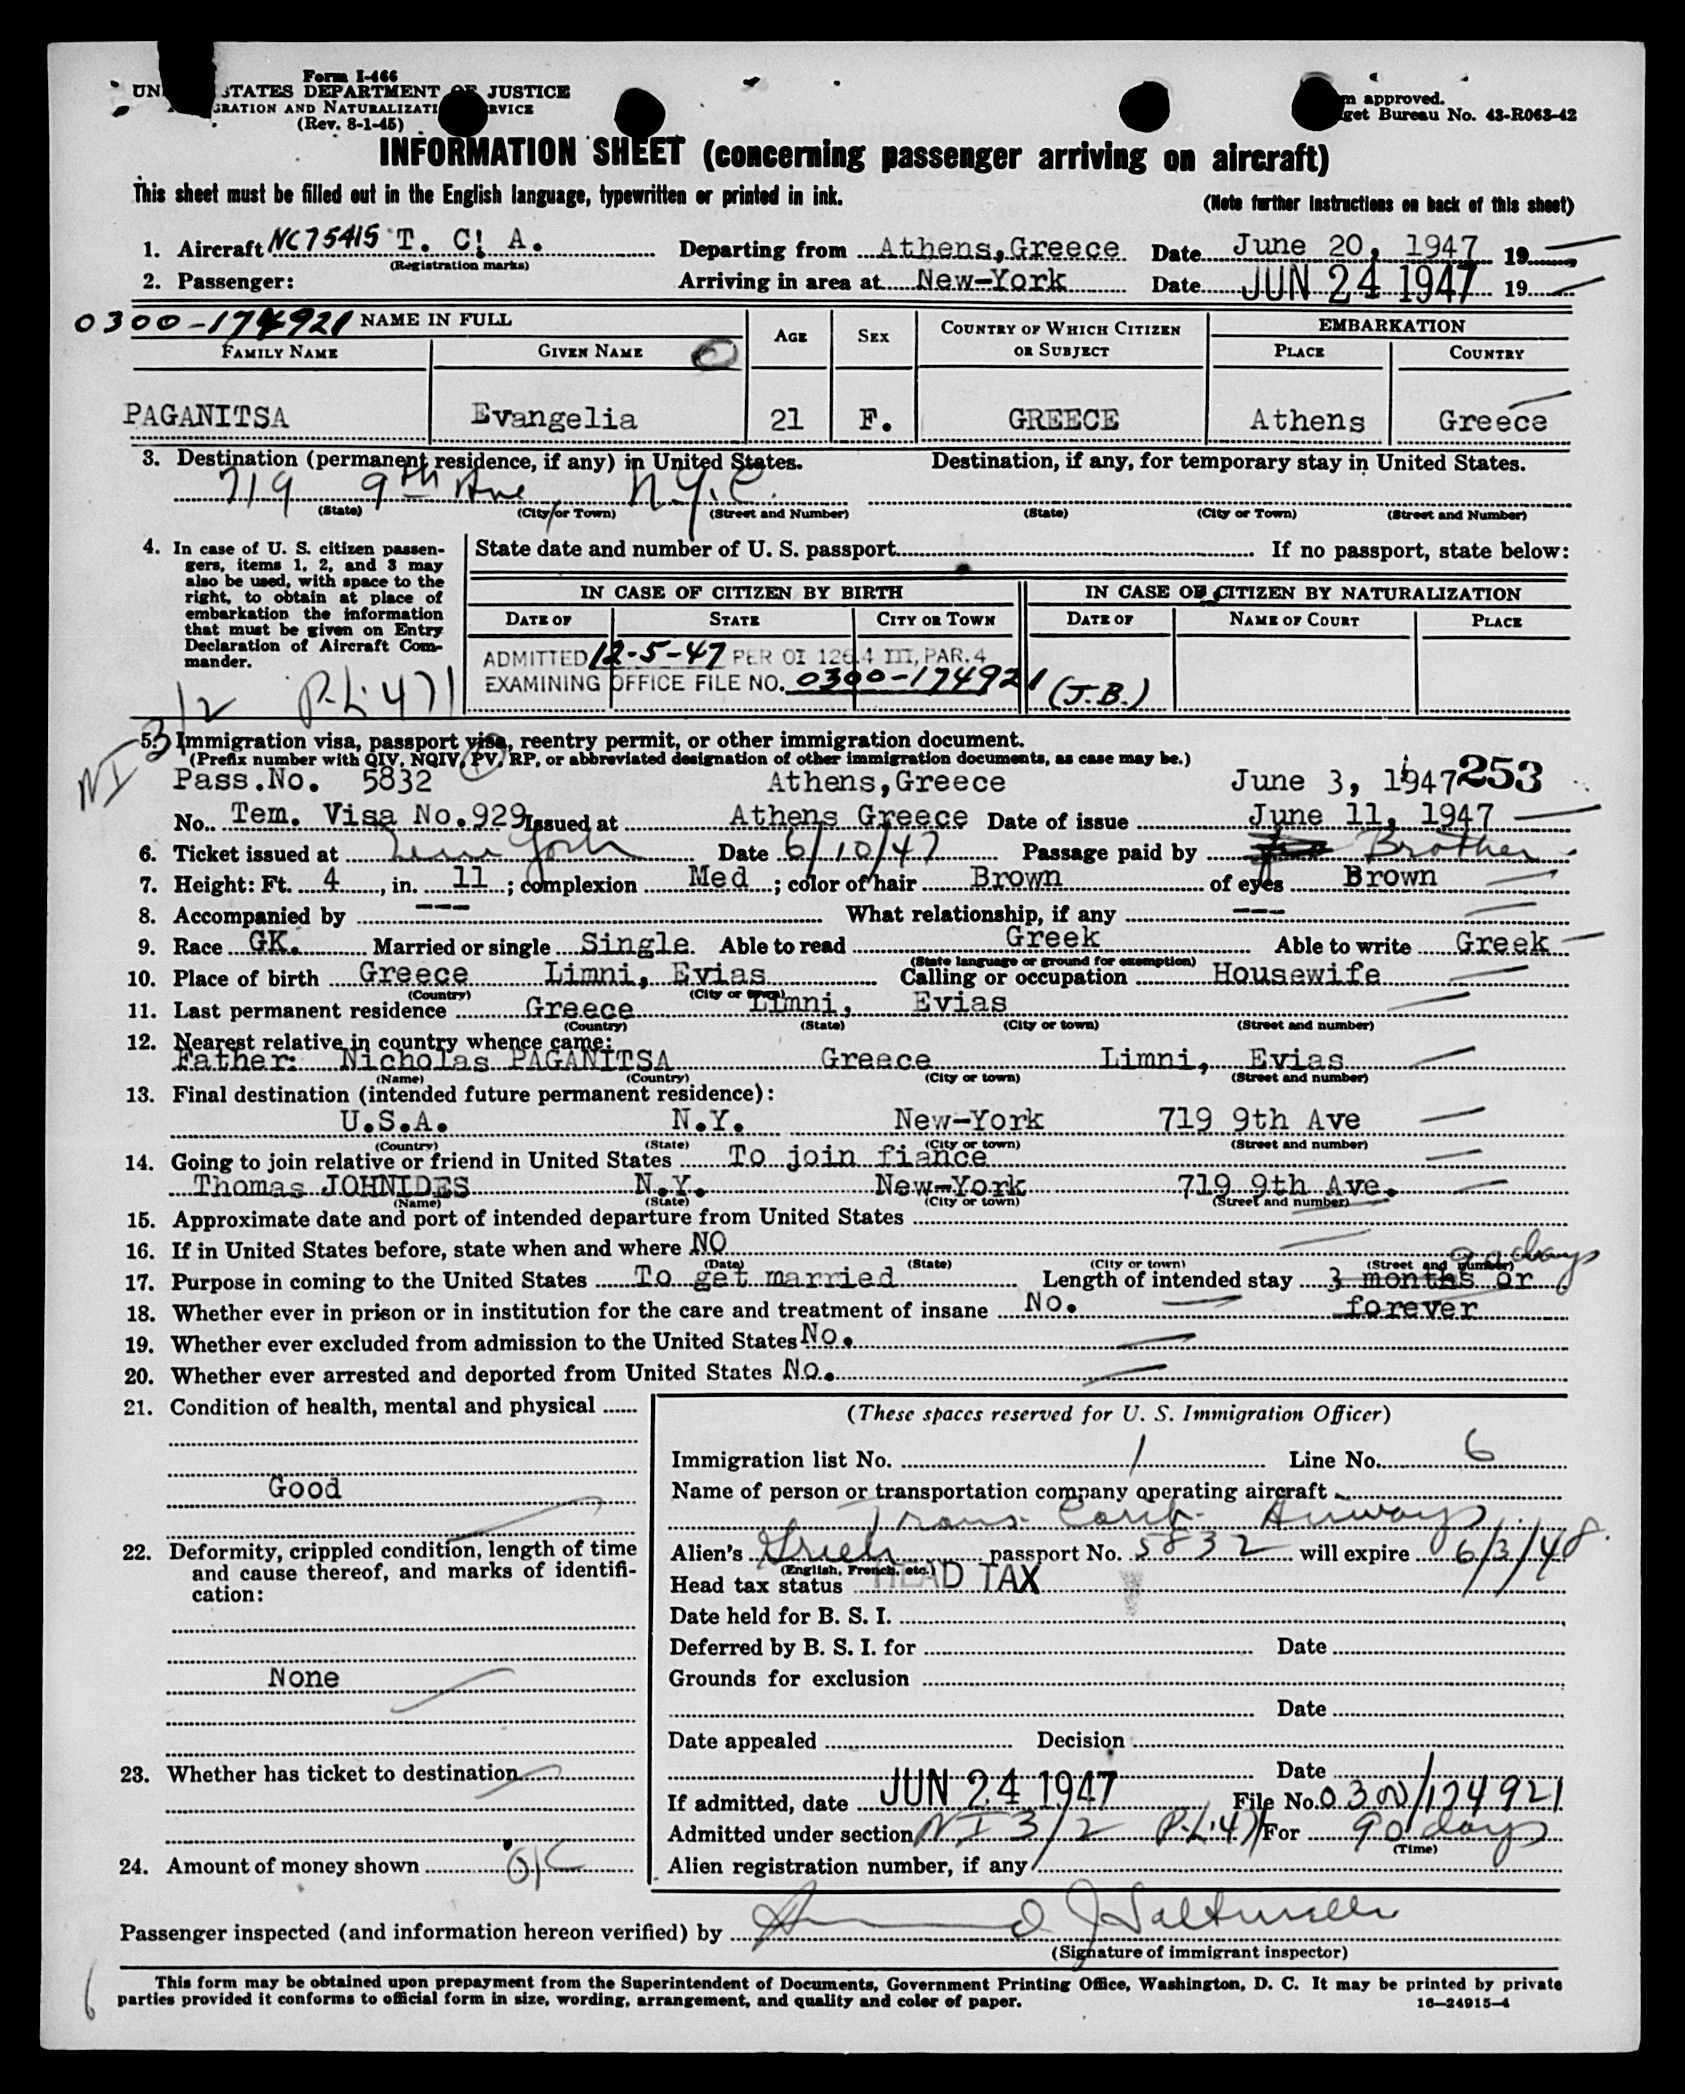 Form I-466
UN STATES DEPARTMENT OF JUSTICE
GRATION AND NATURALIZATI RVICE
(Rev. 8-1-45)
m approved.
get Bureau No. 43-R063-42
INFORMATION SHEET (concerning passenger arriving on aircraft)
This sheet must be filled out in the English language, typewritten or printed in ink.
(Note further instructions on back of this sheet)
1. Aircraft NC75415 T. C. A. Departing from Athens, Greece Date June 20, 1947 19
(Registration marks)
2. Passenger: Arriving in area at New-York Date JUN 24 1947 19
0300-174921 NAME IN FULL AGE SEX COUNTRY OF WHICH CITIZEN OR SUBJECT EMBARKATION
FAMILY NAME GIVEN NAME PLACE COUNTRY
PAGANITSA Evangelia 21 F. GREECE Athens Greece
3. Destination (permanent residence, if any) in United States. Destination, if any, for temporary stay in United States.
719 9th Ave N.Y.C.
(State) (City or Town) (Street and Number) (State) (City or Town) (Street and Number)
4. In case of U. S. citizen passengers, items 1, 2, and 3 may also be used, with space to the right, to obtain at place of embarkation the information that must be given on Entry Declaration of Aircraft Commander.
State date and number of U. S. passport If no passport, state below:
IN CASE OF CITIZEN BY BIRTH IN CASE OF CITIZEN BY NATURALIZATION
DATE OF STATE CITY OR TOWN DATE OF NAME OF COURT PLACE
ADMITTED 12-5-47 PER OI 126.4 III, PAR. 4
EXAMINING OFFICE FILE NO. 0300-174921 (J.B.)
NI 3/2 P.L. 471
5. Immigration visa, passport visa, reentry permit, or other immigration document.
(Prefix number with QIV, NQIV, PV, RP, or abbreviated designation of other immigration documents, as case may be.)
Pass.No. 5832 Athens,Greece June 3, 1947 253
No. Tem. Visa No.929 Issued at Athens Greece Date of issue June 11, 1947
6. Ticket issued at New York Date 6/10/47 Passage paid by Brother
7. Height: Ft. 4, in. 11; complexion Med; color of hair Brown of eyes Brown
8. Accompanied by --- What relationship, if any ---
9. Race GK. Married or single Single Able to read Greek Able to write Greek
(State language or ground for exemption)
10. Place of birth Greece Limni, Evias Calling or occupation Housewife
(Country) (City or town)
11. Last permanent residence Greece Limni, Evias
(Country) (State) (City or town) (Street and number)
12. Nearest relative in country whence came:
Father: Nicholas PAGANITSA Greece Limni, Evias
(Name) (Country) (City or town) (Street and number)
13. Final destination (intended future permanent residence):
U.S.A. N.Y. New-York 719 9th Ave
(Country) (State) (City or town) (Street and number)
14. Going to join relative or friend in United States To join fiance
Thomas JOHNIDES N.Y. New-York 719 9th Ave.
(Name) (State) (City or town) (Street and number)
15. Approximate date and port of intended departure from United States
16. If in United States before, state when and where NO
(Date) (State) (City or town) (Street and number)
90 days
17. Purpose in coming to the United States To get married Length of intended stay 3 months or
18. Whether ever in prison or in institution for the care and treatment of insane No. forever
19. Whether ever excluded from admission to the United States No.
20. Whether ever arrested and deported from United States No.
21. Condition of health, mental and physical
Good
22. Deformity, crippled condition, length of time and cause thereof, and marks of identification:
None
23. Whether has ticket to destination
24. Amount of money shown OK
(These spaces reserved for U. S. Immigration Officer)
Immigration list No. 1 Line No. 6
Name of person or transportation company operating aircraft
Trans. Carib. Airways
Alien's Greek passport No. 5832 will expire 6/3/48.
(English, French, etc.)
Head tax status HEAD TAX
Date held for B. S. I.
Deferred by B. S. I. for Date
Grounds for exclusion
Date
Date appealed Decision
Date
If admitted, date JUN 24 1947 File No. 0300/174921
Admitted under section NI 3/2 P.L. 471 For 90 days
(Time)
Alien registration number, if any
Passenger inspected (and information hereon verified) by
(Signature of immigrant inspector)
6
This form may be obtained upon prepayment from the Superintendent of Documents, Government Printing Office, Washington, D. C. It may be printed by private
parties provided it conforms to official form in size, wording, arrangement, and quality and color of paper.
16—24915-4